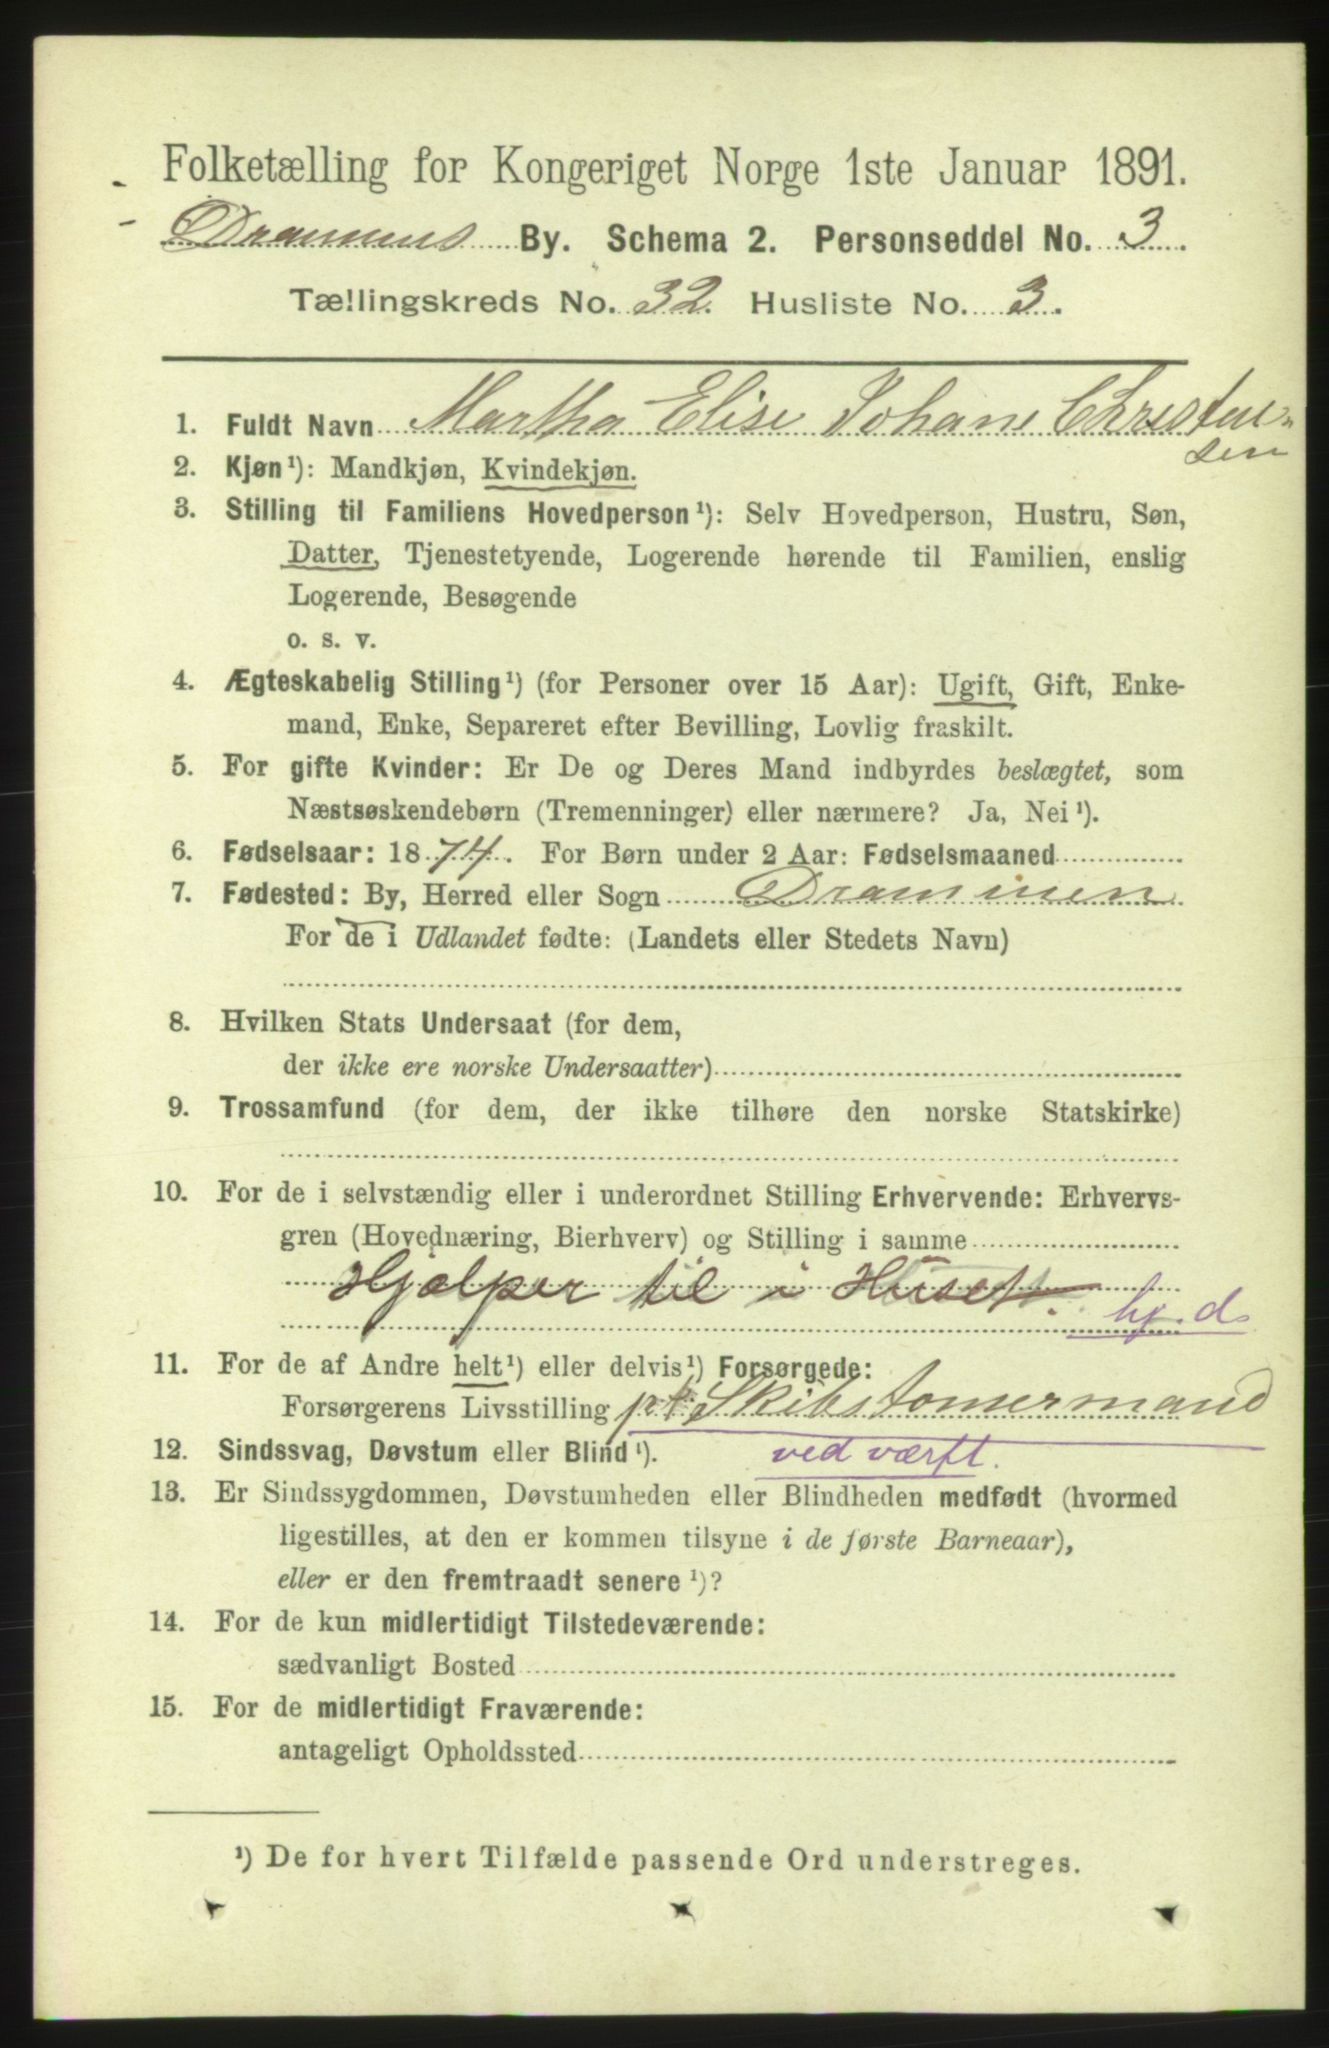 Folketælling for Kongeriget Norge 1ste Januar 1891.
Drammens By. Schema 2. Personseddel No. 3.
Tællingskreds No. 32. Husliste No. 3.
1. Fuldt Navn Martha Elise Johane Christen-
sen
2. Kjøn¹): Mandkjøn, Kvindekjøn.
3. Stilling til Familiens Hovedperson¹): Selv Hovedperson, Hustru, Søn,
Datter, Tjenestetyende, Logerende hørende til Familien, enslig
Logerende, Besøgende
o. s. v.
4. Ægteskabelig Stilling¹) (for Personer over 15 Aar): Ugift, Gift, Enke-
mand, Enke, Separeret efter Bevilling, Lovlig fraskilt.
5. For gifte Kvinder: Er De og Deres Mand indbyrdes beslægtet, som
Næstsøskendebørn (Tremenninger) eller nærmere? Ja, Nei¹).
6. Fødselsaar: 1874. For Børn under 2 Aar: Fødselsmaaned
7. Fødested: By, Herred eller Sogn Drammen
For de i Udlandet fødte: (Landets eller Stedets Navn)
8. Hvilken Stats Undersaat (for dem,
der ikke ere norske Undersaatter)
9. Trossamfund (for dem, der ikke tilhøre den norske Statskirke)
10. For de i selvstændig eller i underordnet Stilling Erhvervende: Erhvervs-
gren (Hovednæring, Bierhverv) og Stilling i samme
Hjælper til i Huset. hj. d.
11. For de af Andre helt¹) eller delvis¹) Forsørgede:
Forsørgerens Livsstilling pt. Skibstømermand
12. Sindssvag, Døvstum eller Blind¹). ved værft.
13. Er Sindssygdommen, Døvstumheden eller Blindheden medfødt (hvormed
ligestilles, at den er kommen tilsyne i de første Barneaar),
eller er den fremtraadt senere¹)?
14. For de kun midlertidigt Tilstedeværende:
sædvanligt Bosted
15. For de midlertidigt Fraværende:
antageligt Opholdssted
¹) De for hvert Tilfælde passende Ord understreges.